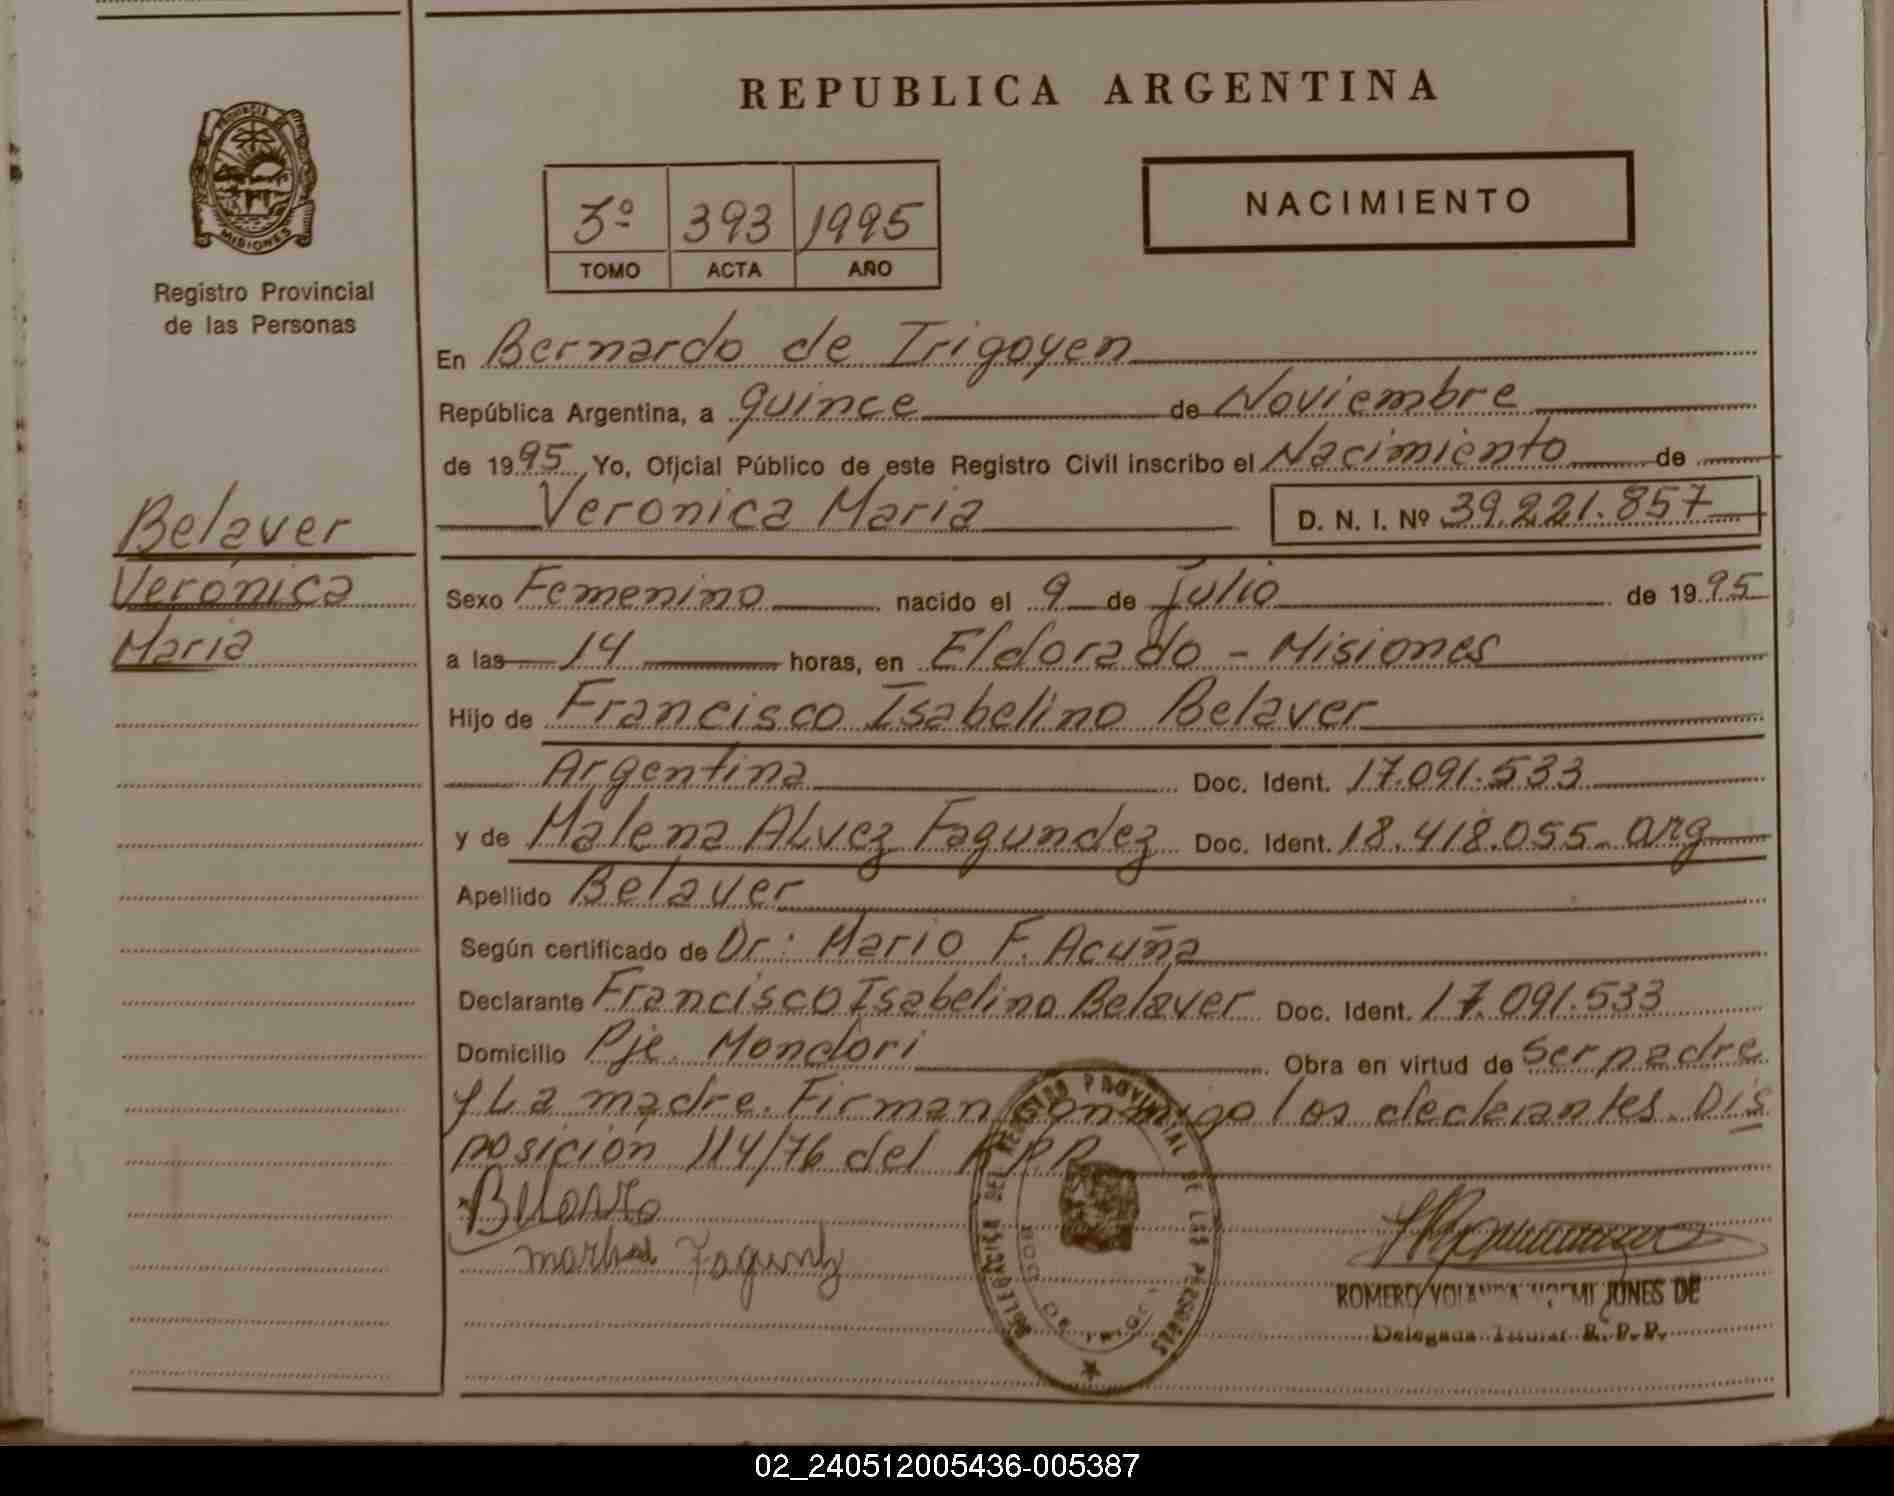 REPUBLICA ARGENTINA
PROVINCIA DE
MISIONES
Registro Provincial
de las Personas
3º 393 1995
TOMO ACTA AÑO
NACIMIENTO
En Bernardo de Irigoyen
República Argentina, a quince de Noviembre
de 1995 Yo, Oficial Público de este Registro Civil inscribo el Nacimiento de
Veronica Maria D. N. I. Nº 39.221.857
Belaver
Verónica
Maria
Sexo Femenino nacido el 9 de Julio de 1995
a las 14 horas, en Eldorado - Misiones
Hijo de Francisco Isabelino Belaver
Argentina Doc. Ident. 17.091.533
y de Malena ALvez Fagundez Doc. Ident. 18.418.055- arg
Apellido Belaver
Según certificado de Dr: Mario F. Acuña
Declarante Francisco Isabelino Belaver Doc. Ident. 17.091.533
Domicilio Pje. Mondori Obra en virtud de ser padre
y La madre. Firman conmigo los declarantes. Dis
posición 114/76 del R.P.P
DELEGACION DEL REGISTRO PROVINCIAL DE LAS PERSONAS
DE IRIGOY
ROMERO YOLANDA NOEMI JUNES DE
Delegada Titular R. P. P.
02_240512005436-005387